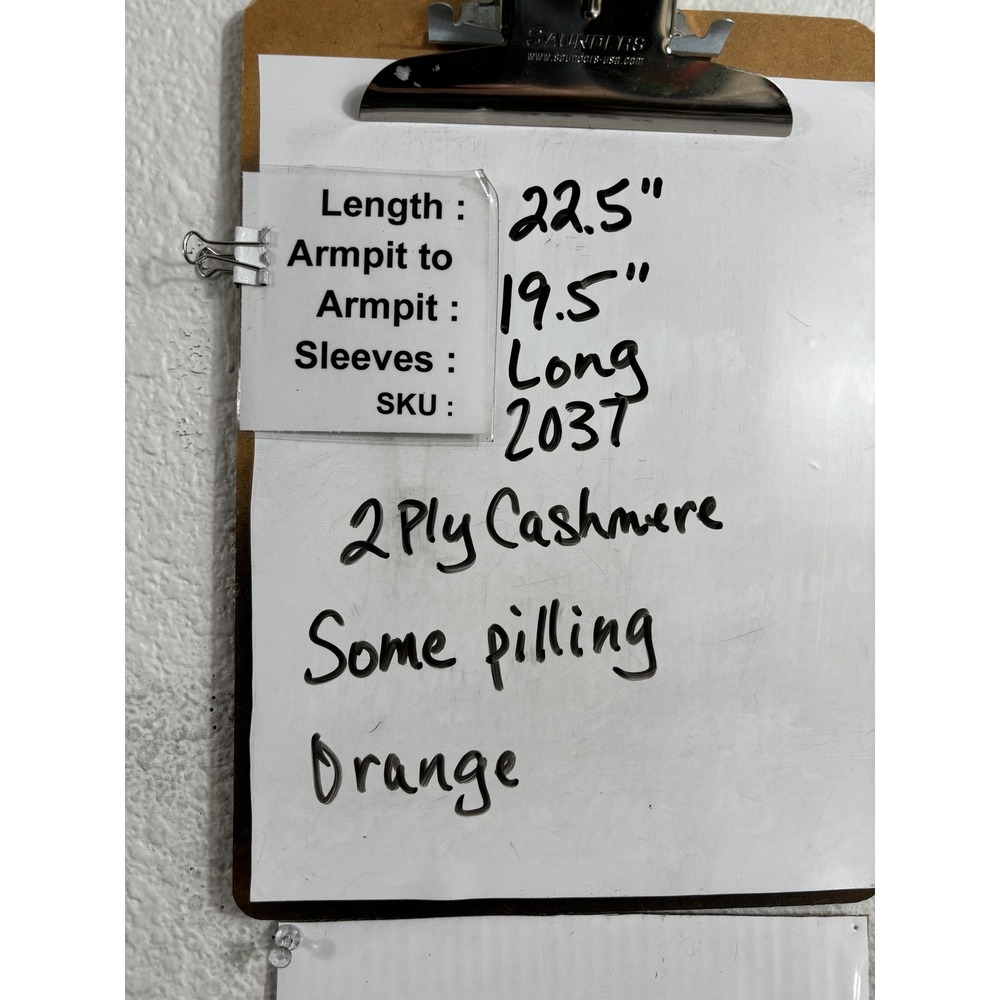 SAUNDERS
www.saunders-usa.com
Length : 22.5"
Armpit to
Armpit : 19.5"
Sleeves : Long
SKU : 2037
2 Ply Cashmere
Some pilling
Orange